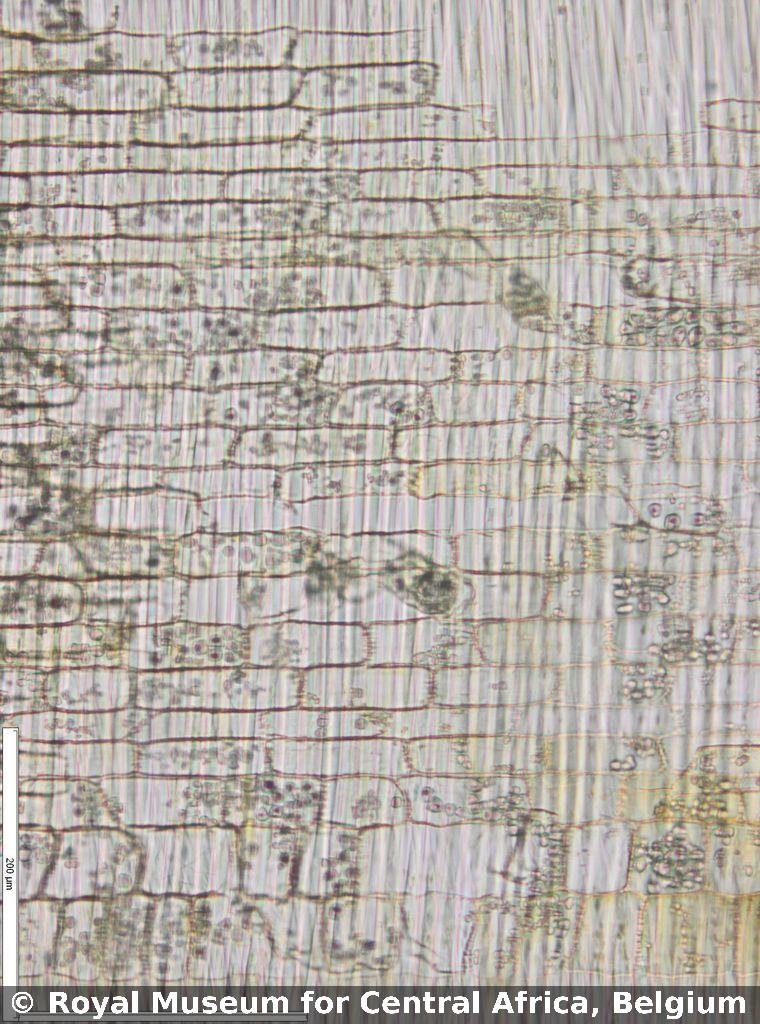 200 µm
© Royal Museum for Central Africa, Belgium